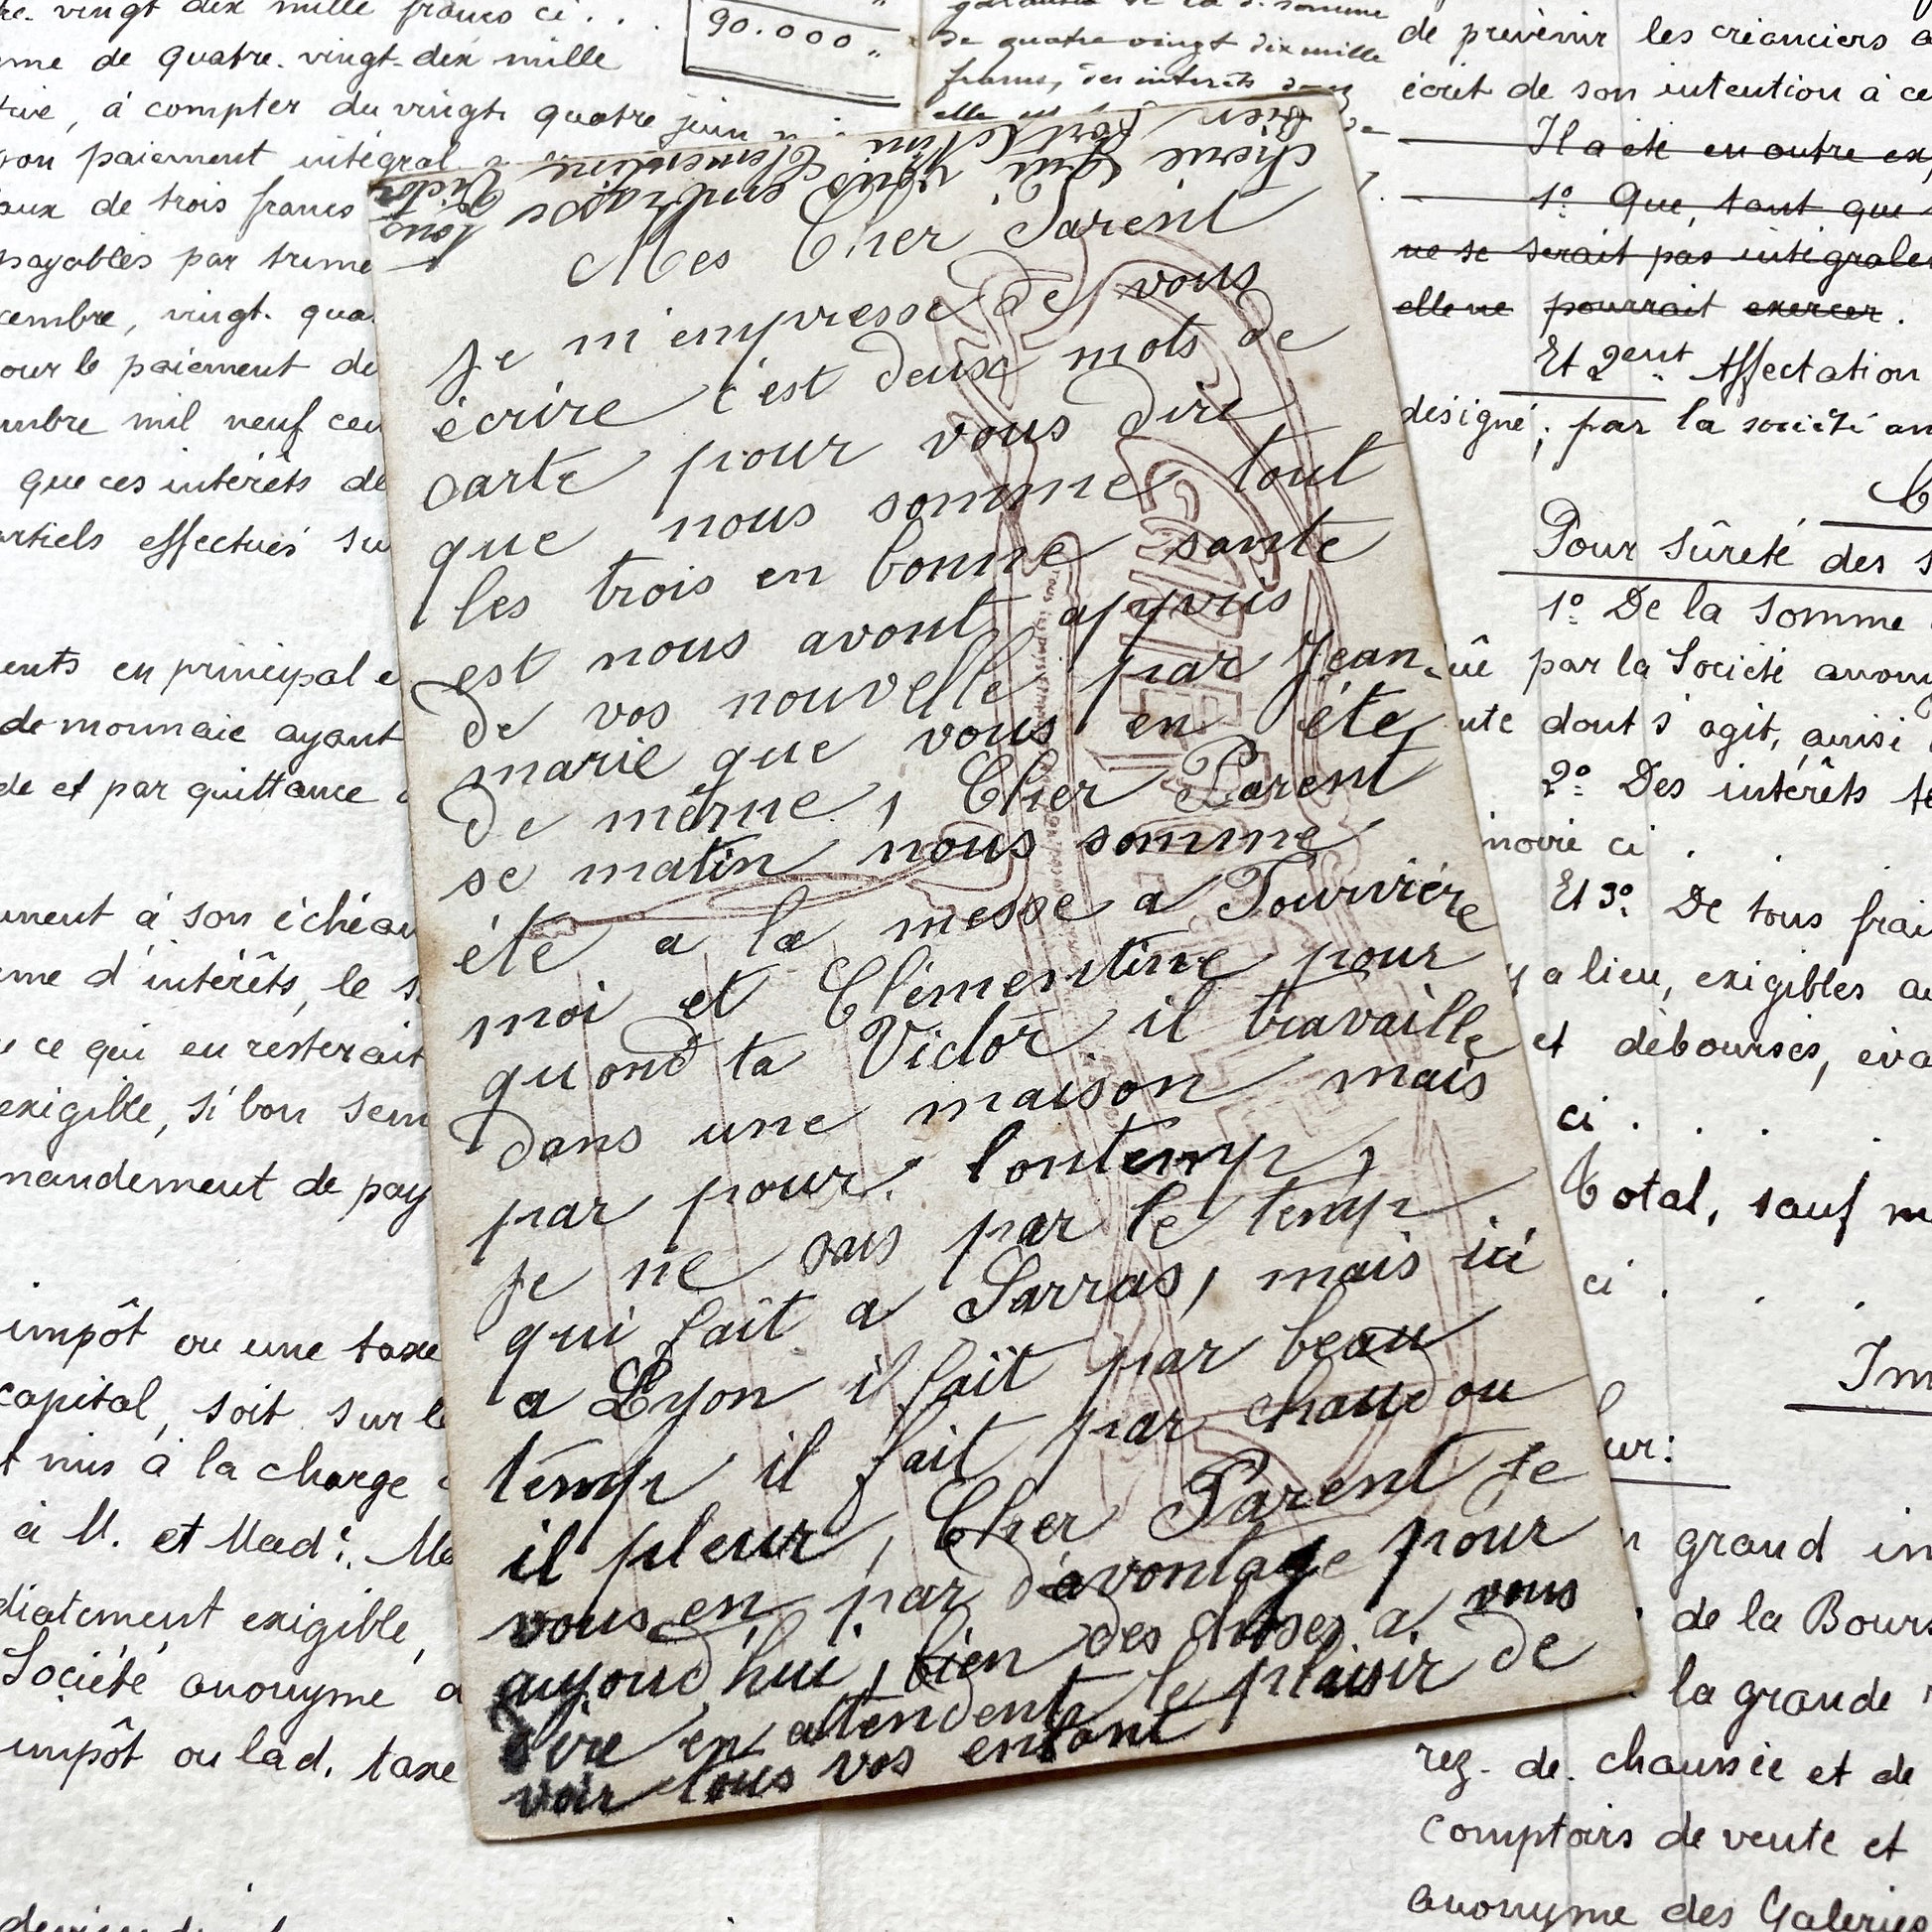 Mes Cher Parent
je m'empresse de vous
écrire c'est deux mots de
carte pour vous dire
que nous somme tout
les trois en bonne sante
est nous avont appris
de vos nouvelle par Jean-
marie que vous en éte
de même, Cher Parent
se matin nous somme
été a la messe a Fourvière
moi et Clémentine pour
quond ta Victor il travaille
dans une maison mais
par pour lontemp,
je ne sais par le temp
qui fait a Sarras, mais ici
a Lyon il fait par beau
temp il fait par chaud ou
il pleur, Cher Parent je
vous en par davontage pour
aujourd'hui, bien des choses a vous
dire en attendent le plaisir de
voir tous vos enfant
cherie qui vous
bien fort
Clementine
Victor
vingt dix mille francs ci . .
90.000 "
me de quatre-vingt-dix mille
à compter du vingt quatre juin
paiement intégral
aux de trois francs
payables par trime
cembre, vingt-qua
our le paiement de
mbre mil neuf cen
que ces intérêts de
artiels effectués su
ents en principal e
de monnaie ayant
de et par quittance
ment à son échéan
me d'intérêts, le s
ce qui en resterait
exigible, si bon sem
mandement de pay
impôt ou une taxe
capital, soit sur le
mis à la charge
à M. et Mad^e. Ma
diatement exigible,
Société anonyme a
impôt ou lad. taxe
de la d. somme
de quatre vingt dix mille
francs, des intérêts dont
elle est
de prévenir les créanciers
écrit de son intention à ce
Il a été en outre ex
1º Que, tant que
ne se serait pas intégrale
elle ne pourrait exercer.
Et 2ent Affectation
désigné; par la société an
Pour sûreté des s
1º De la somme
par la Société anony
ute dont s'agit, ainsi
2º Des intérêts
noire ci .
Et 3º De tous frai
y a lieu, exigibles au
et débourses, éva
ci . . .
Total, sauf m
ci . . .
Im
ur:
grand im
de la Bours
la grande
rez-de-chaussée et de
comptoirs de vente et
anonyme des Galeries